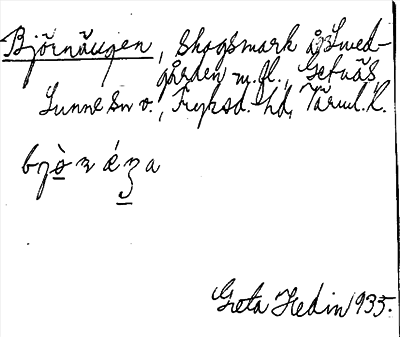 Björnängen, Skogsmark å Smed-
gården m.fl., Getnäs,
Sunne sn v., Fryksd. hd, Värml. l.
Greta Hedin 1935.